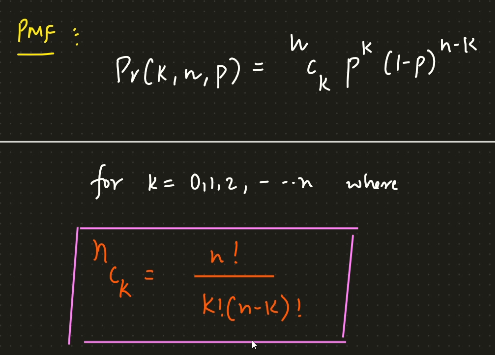 PMF :
Pr(k,n,p) = ⁿCₖ pᵏ (1-p)ⁿ⁻ᵏ
for k = 0,1,2, - -..n where
ⁿCₖ = n! / k!(n-k)!